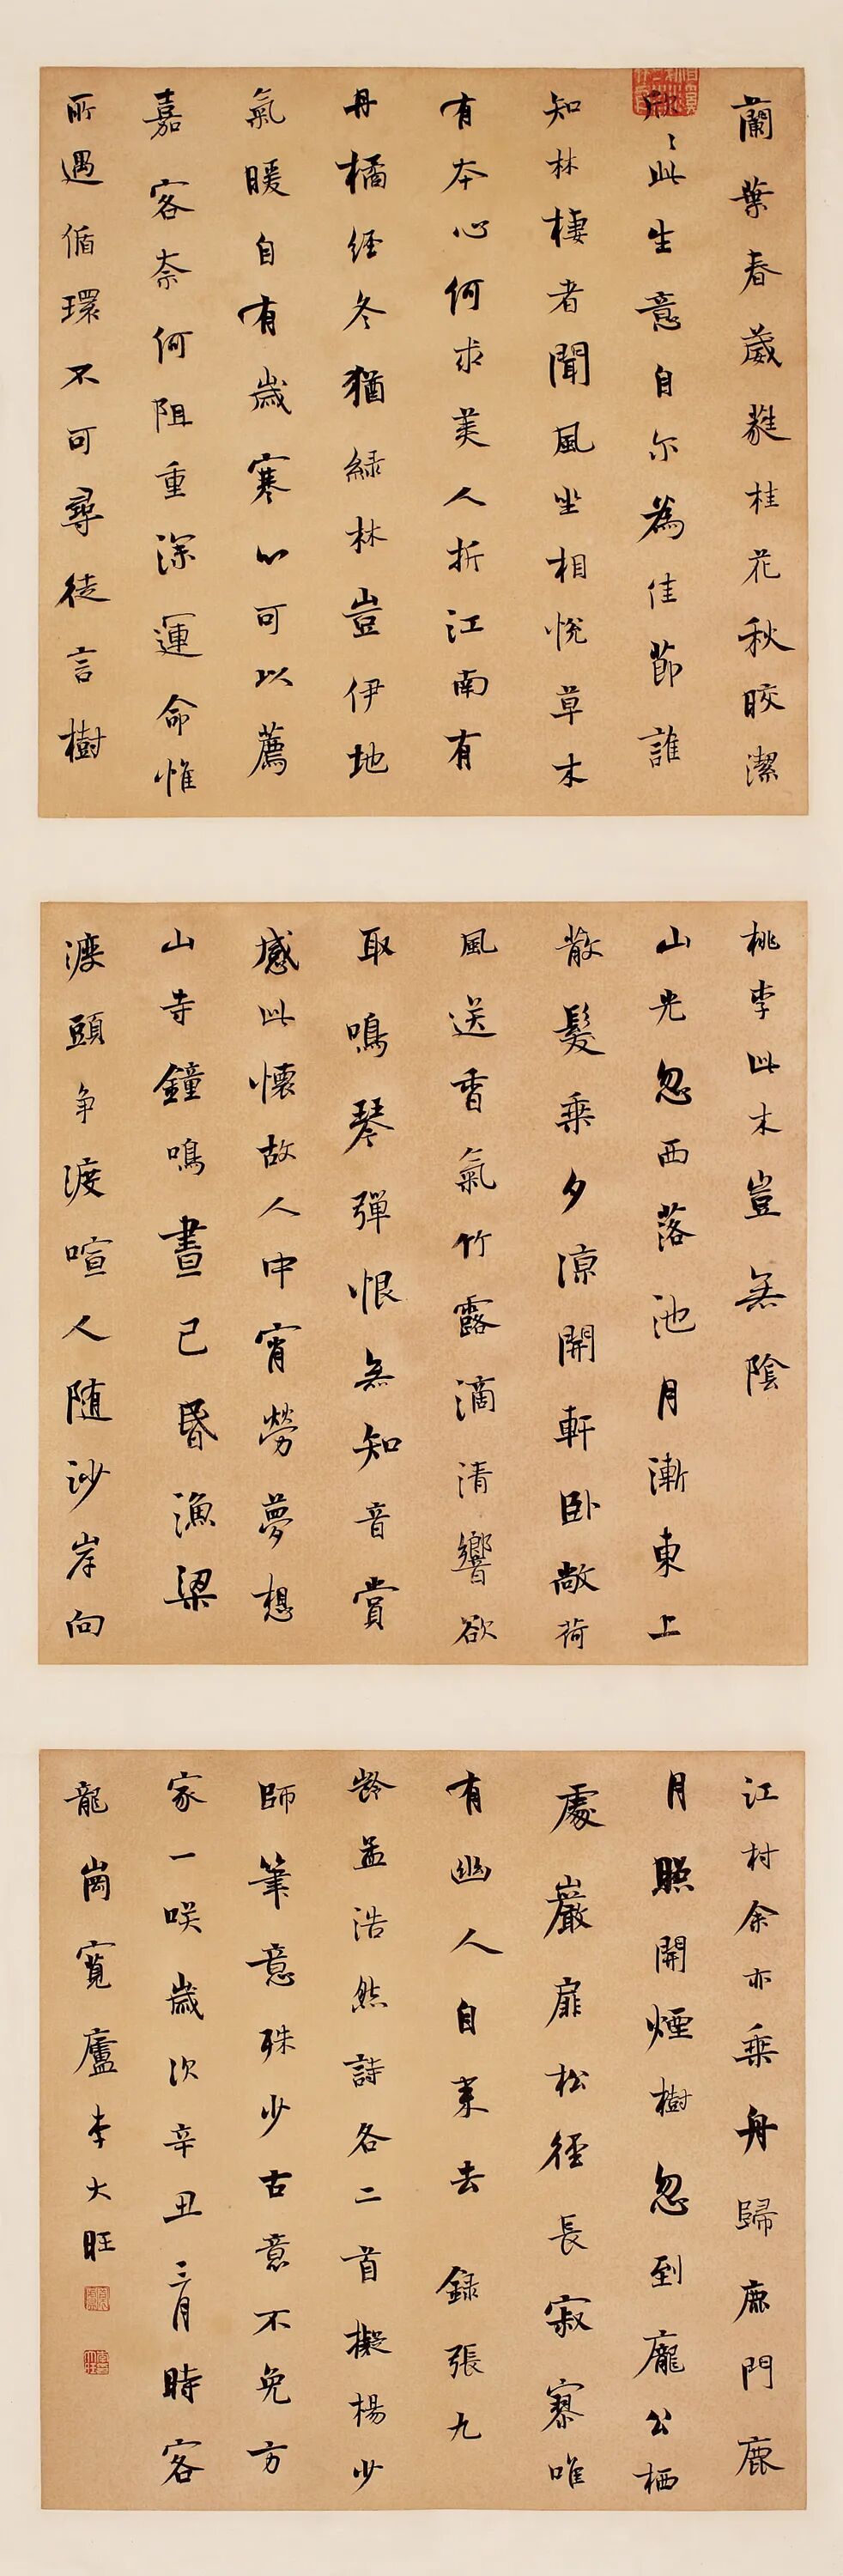 蘭葉春葳蕤桂花秋皎潔
欣〻此生意自尔為佳節誰
知林棲者聞風坐相悅草木
有本心何求美人折江南有
丹橘經冬猶綠林豈伊地
氣暖自有歲寒心可以薦
嘉客奈何阻重深運命惟
所遇循環不可尋徒言樹
桃李此木豈無陰
山光忽西落池月漸東上
散髮乘夕涼開軒臥敞荷
風送香氣竹露滴清響欲
取鳴琴彈恨無知音賞
感此懷故人中宵勞夢想
山寺鐘鳴晝已昏漁梁
渡頭争渡喧人随沙岸向
江村余亦乘舟歸鹿門鹿
月照開煙樹忽到龐公栖
處巖扉松徑長寂寥唯
有幽人自来去 錄張九
齡孟浩然詩各二首擬楊少
師筆意殊少古意不免方
家一咲歲次辛丑三月時客
龍崗寬廬李大旺